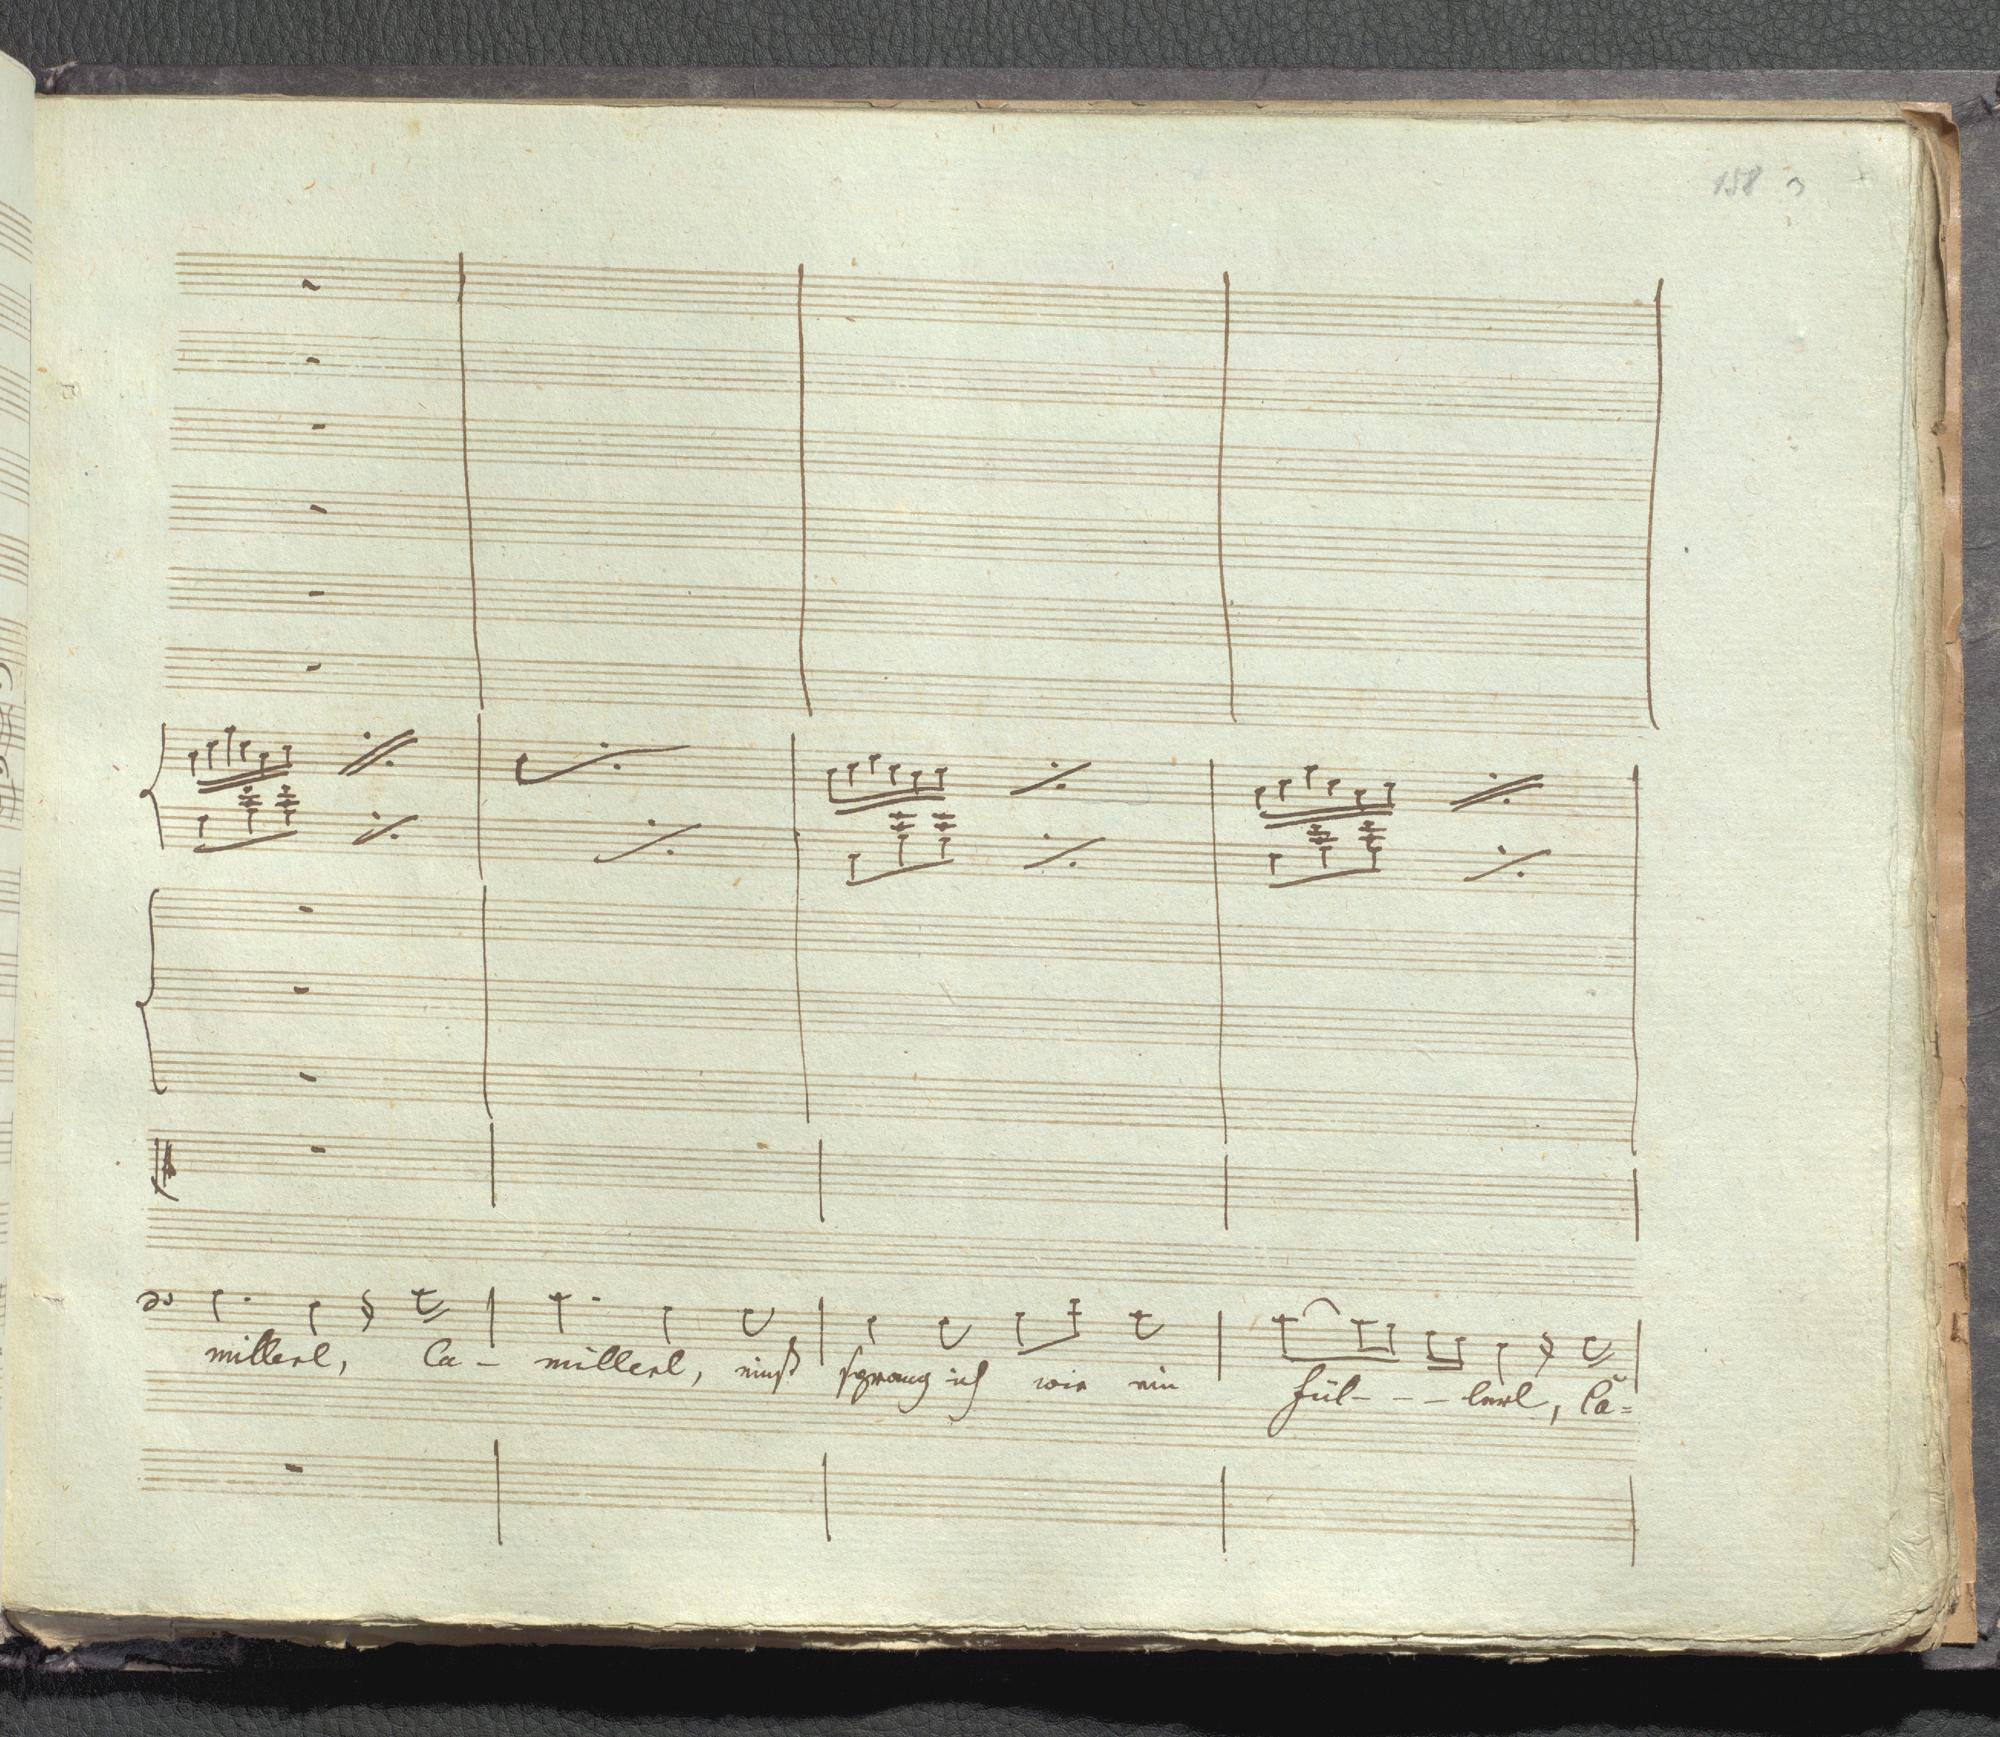 158
millerl, Ca - millerl, einst sprang ich wie ein Fül - - - lerl, Ca=